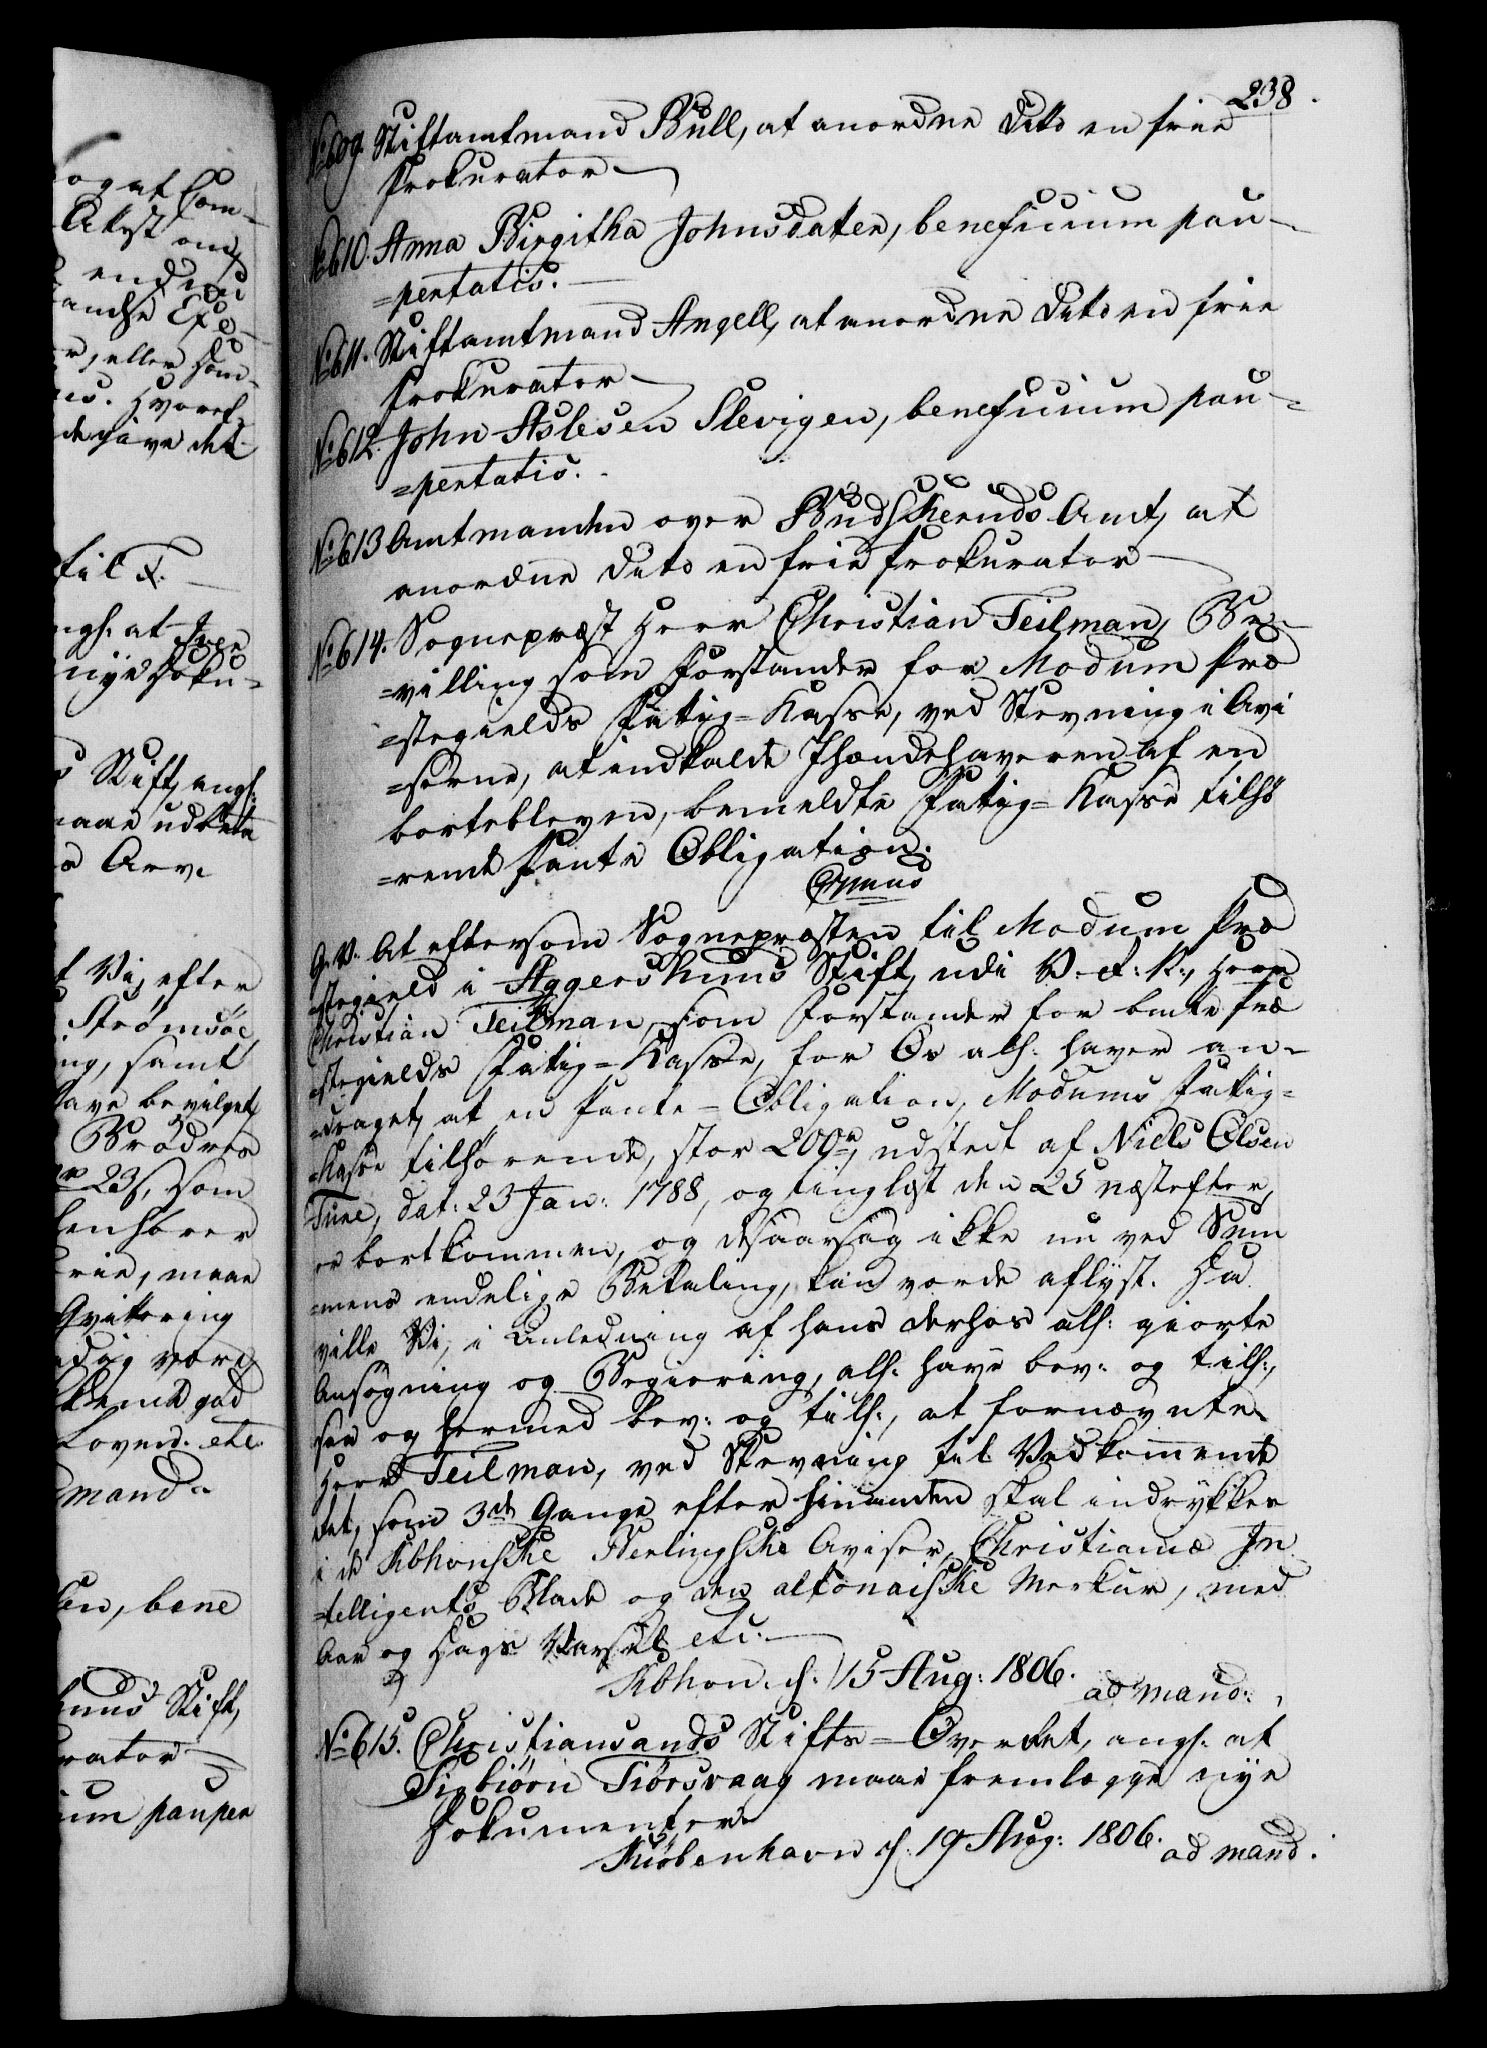 238.
No 609. Stiftamtmand Bull, at anordne Dito en frie
Prokurator
No 610. Anna Birgitha Johnsdatter, beneficium pau-
=pertatis.
No 611. Stiftamtmand Angell, at anordne Dito en frie
Prokurator
No 612. John Aslesen Slevigen, beneficium pau-
=pertatis.
No 613 Amtmanden over Budskeruds Amt, at
anordne Dito en frie Prokurator
No 614. Sognepræst Herr Christian Teilman, Be-
=villing som Forstander for Modum Præ
=stegields Fatig=Kasse, ved Stevning i Avi
=serne, at indkalde Ihændehaveren af en
bortebleven, bemeldte Fatig=Kasse tilhø
=rende Pante Obligation.
G. V. At eftersom Sognepræsten til Modum Præ
=stegield i Aggershuus Stift, udi V. R: N:, Herr
Christian Teilman, som Forstander for bmte Præ
=stegields Fatig=Kasse, for Os alh. haver an-
=draget, at en Pante=Obligation, Modums Fatig=
=Kasse tilhørende, stor 200 r, udstedt af Niels Olsen
Tune, dat: 23 Jan: 1788, og tinglæst den 25 næstefter,
er bortkommen, og desaarsag ikke nu ved Sum
=mens endelige Betaling, kan vorde aflyst. Da
ville Vi, i Anledning af hans derhos alh: giorte
Ansøgning og Begiering, alh. have bev: og tilh:,
saa og hermed bev: og tilh:, at fornævnte
Herr Teilman, ved Stevning til Vedkommende
det, som 3de Gange efter hinanden skal indrykkes
i de Kbhonske Berlingske Aviser, Christianiæ In
=telligents Blade og den altonaiske Merkur, med
Aar og Dags Varsel etc.
Kbhon. d. 15 Aug: 1806.
ad mand:
No 615. Christiansands Stifts=Overret, angl. at
Sigbiørn Tiørsvaag maae fremlægge nye
Dokumenter
Kiøbenhavn d. 19 Aug: 1806.
ad mand.